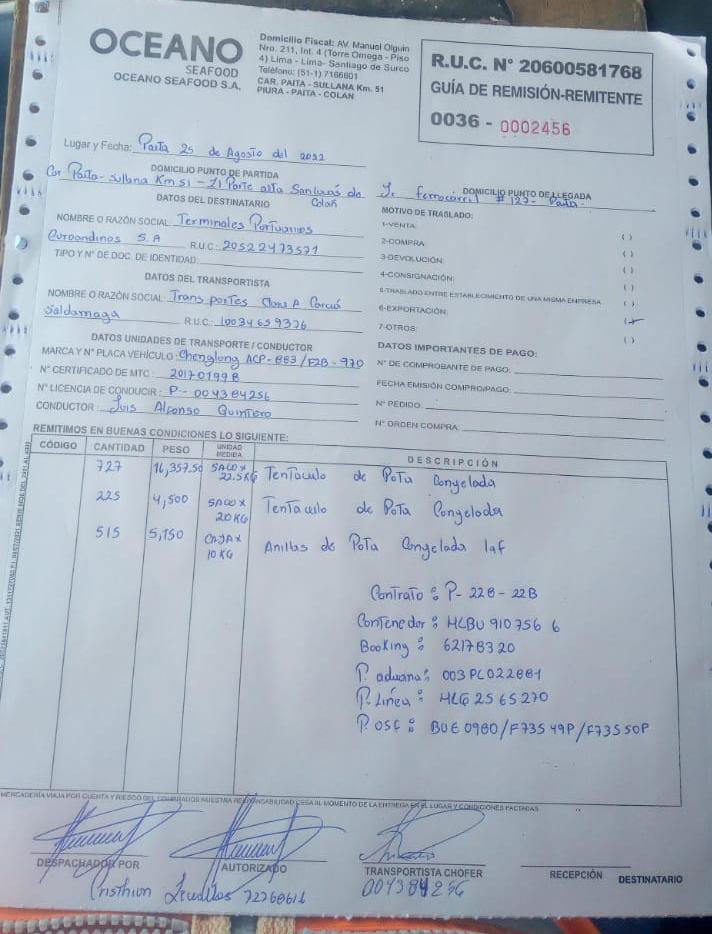 OCEANO
SEAFOOD
OCEANO SEAFOOD S.A.
Domicilio Fiscal: AV. Manuel Olguin
Nro. 211, Int. 4 (Torre Omega - Piso
4) Lima - Lima- Santiago de Surco
Teléfono: (51-1) 7166601
CAR. PAITA - SULLANA Km. 51
PIURA - PAITA - COLAN
R.U.C. N° 20600581768
GUÍA DE REMISIÓN-REMITENTE
0036 - 0002456
Lugar y Fecha: Paita 25 de Agosto del 2022
DOMICILIO PUNTO DE PARTIDA
Car Paita - Sullana Km 51 - Z1 Parte alta San Lucas de Colan
DOMICILIO PUNTO DE LLEGADA
Jr. ferrocarril # 127- Paita
DATOS DEL DESTINATARIO
NOMBRE O RAZÓN SOCIAL: Terminales Portuarios
Euroandinos S.A R.U.C: 20522473571
TIPO Y N° DE DOC. DE IDENTIDAD:
MOTIVO DE TRASLADO:
1-VENTA: ( )
2-COMPRA ( )
3-DEVOLUCIÓN: ( )
4-CONSIGNACIÓN: ( )
5-TRASLADO ENTRE ESTABLECIMIENTO DE UNA MISMA EMPRESA ( )
6-EXPORTACIÓN:
7-OTROS: ( )
DATOS DEL TRANSPORTISTA
NOMBRE O RAZÓN SOCIAL: Transportes Clara A
Saldarriaga R.U.C: 10034659376
DATOS UNIDADES DE TRANSPORTE / CONDUCTOR
MARCA Y N° PLACA VEHÍCULO: Chenglong ACP-883/F2B-970
N° CERTIFICADO DE MTC: 20170199B
N° LICENCIA DE CONDUCIR: P-004384256
CONDUCTOR: Luis Alfonso Quintero
DATOS IMPORTANTES DE PAGO:
N° DE COMPROBANTE DE PAGO:
FECHA EMISIÓN COMPROPAGO:
N° PEDIDO:
N° ORDEN COMPRA:
REMITIMOS EN BUENAS CONDICIONES LO SIGUIENTE:
CÓDIGO CANTIDAD PESO UNIDAD MEDIDA DESCRIPCIÓN
727 16,357.50 SACO x 22.5KG Tentaculo de Pota Congelada
225 4,500 SACO x 20KG Tentaculo de Pota Congelada
515 5,150 CAJA x 10 KG Anillas de Pota Congelada Iqf
Contrato: P-228-22B
Contenedor: HLBU 910756 6
Booking: 62178320
P. aduana: 003PL022881
P. Linea: HLG 2565270
P. OSC: BUE 0980/F73549P/F73550P
MERCADERÍA VIAJA POR CUENTA Y RIESGO DEL COMPRADOR NUESTRA RESPONSABILIDAD CESA AL MOMENTO DE LA ENTREGA EN EL LUGAR Y CONDICIONES PACTADAS.
DESPACHADOR POR
AUTORIZADO
TRANSPORTISTA CHOFER
RECEPCIÓN DESTINATARIO
Cristhian Zevallos 72768616
004384256